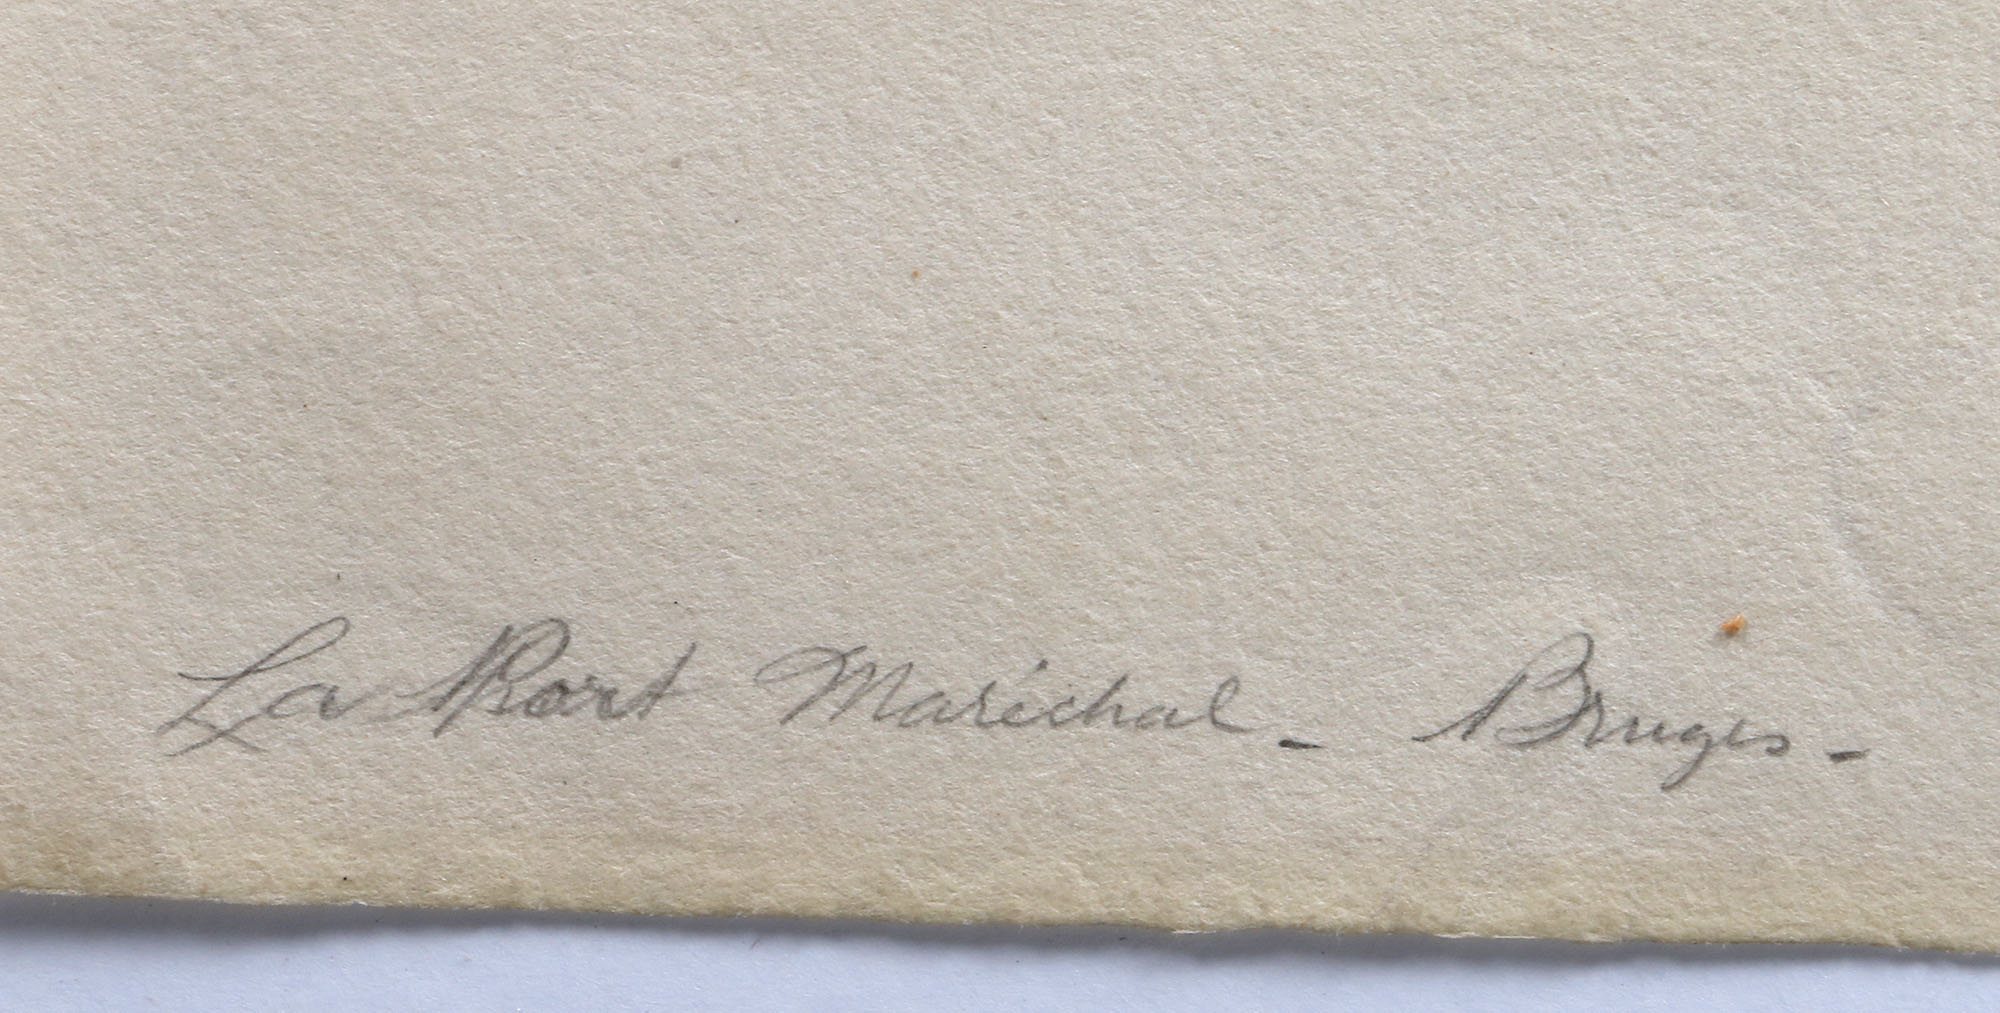 La Port Maréchal - Bruges -